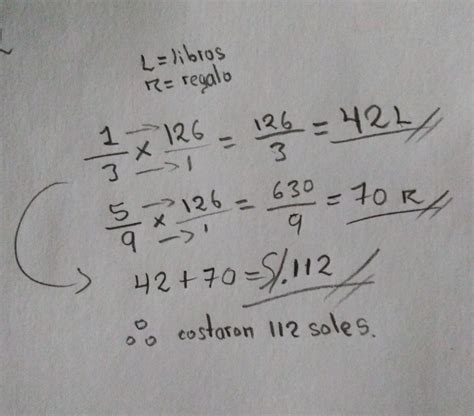 L = libros
R = regalo
1/3 x 126/1 = 126/3 = 42 L
5/9 x 126/1 = 630/9 = 70 R
42 + 70 = S/.112
∴ costaron 112 soles.